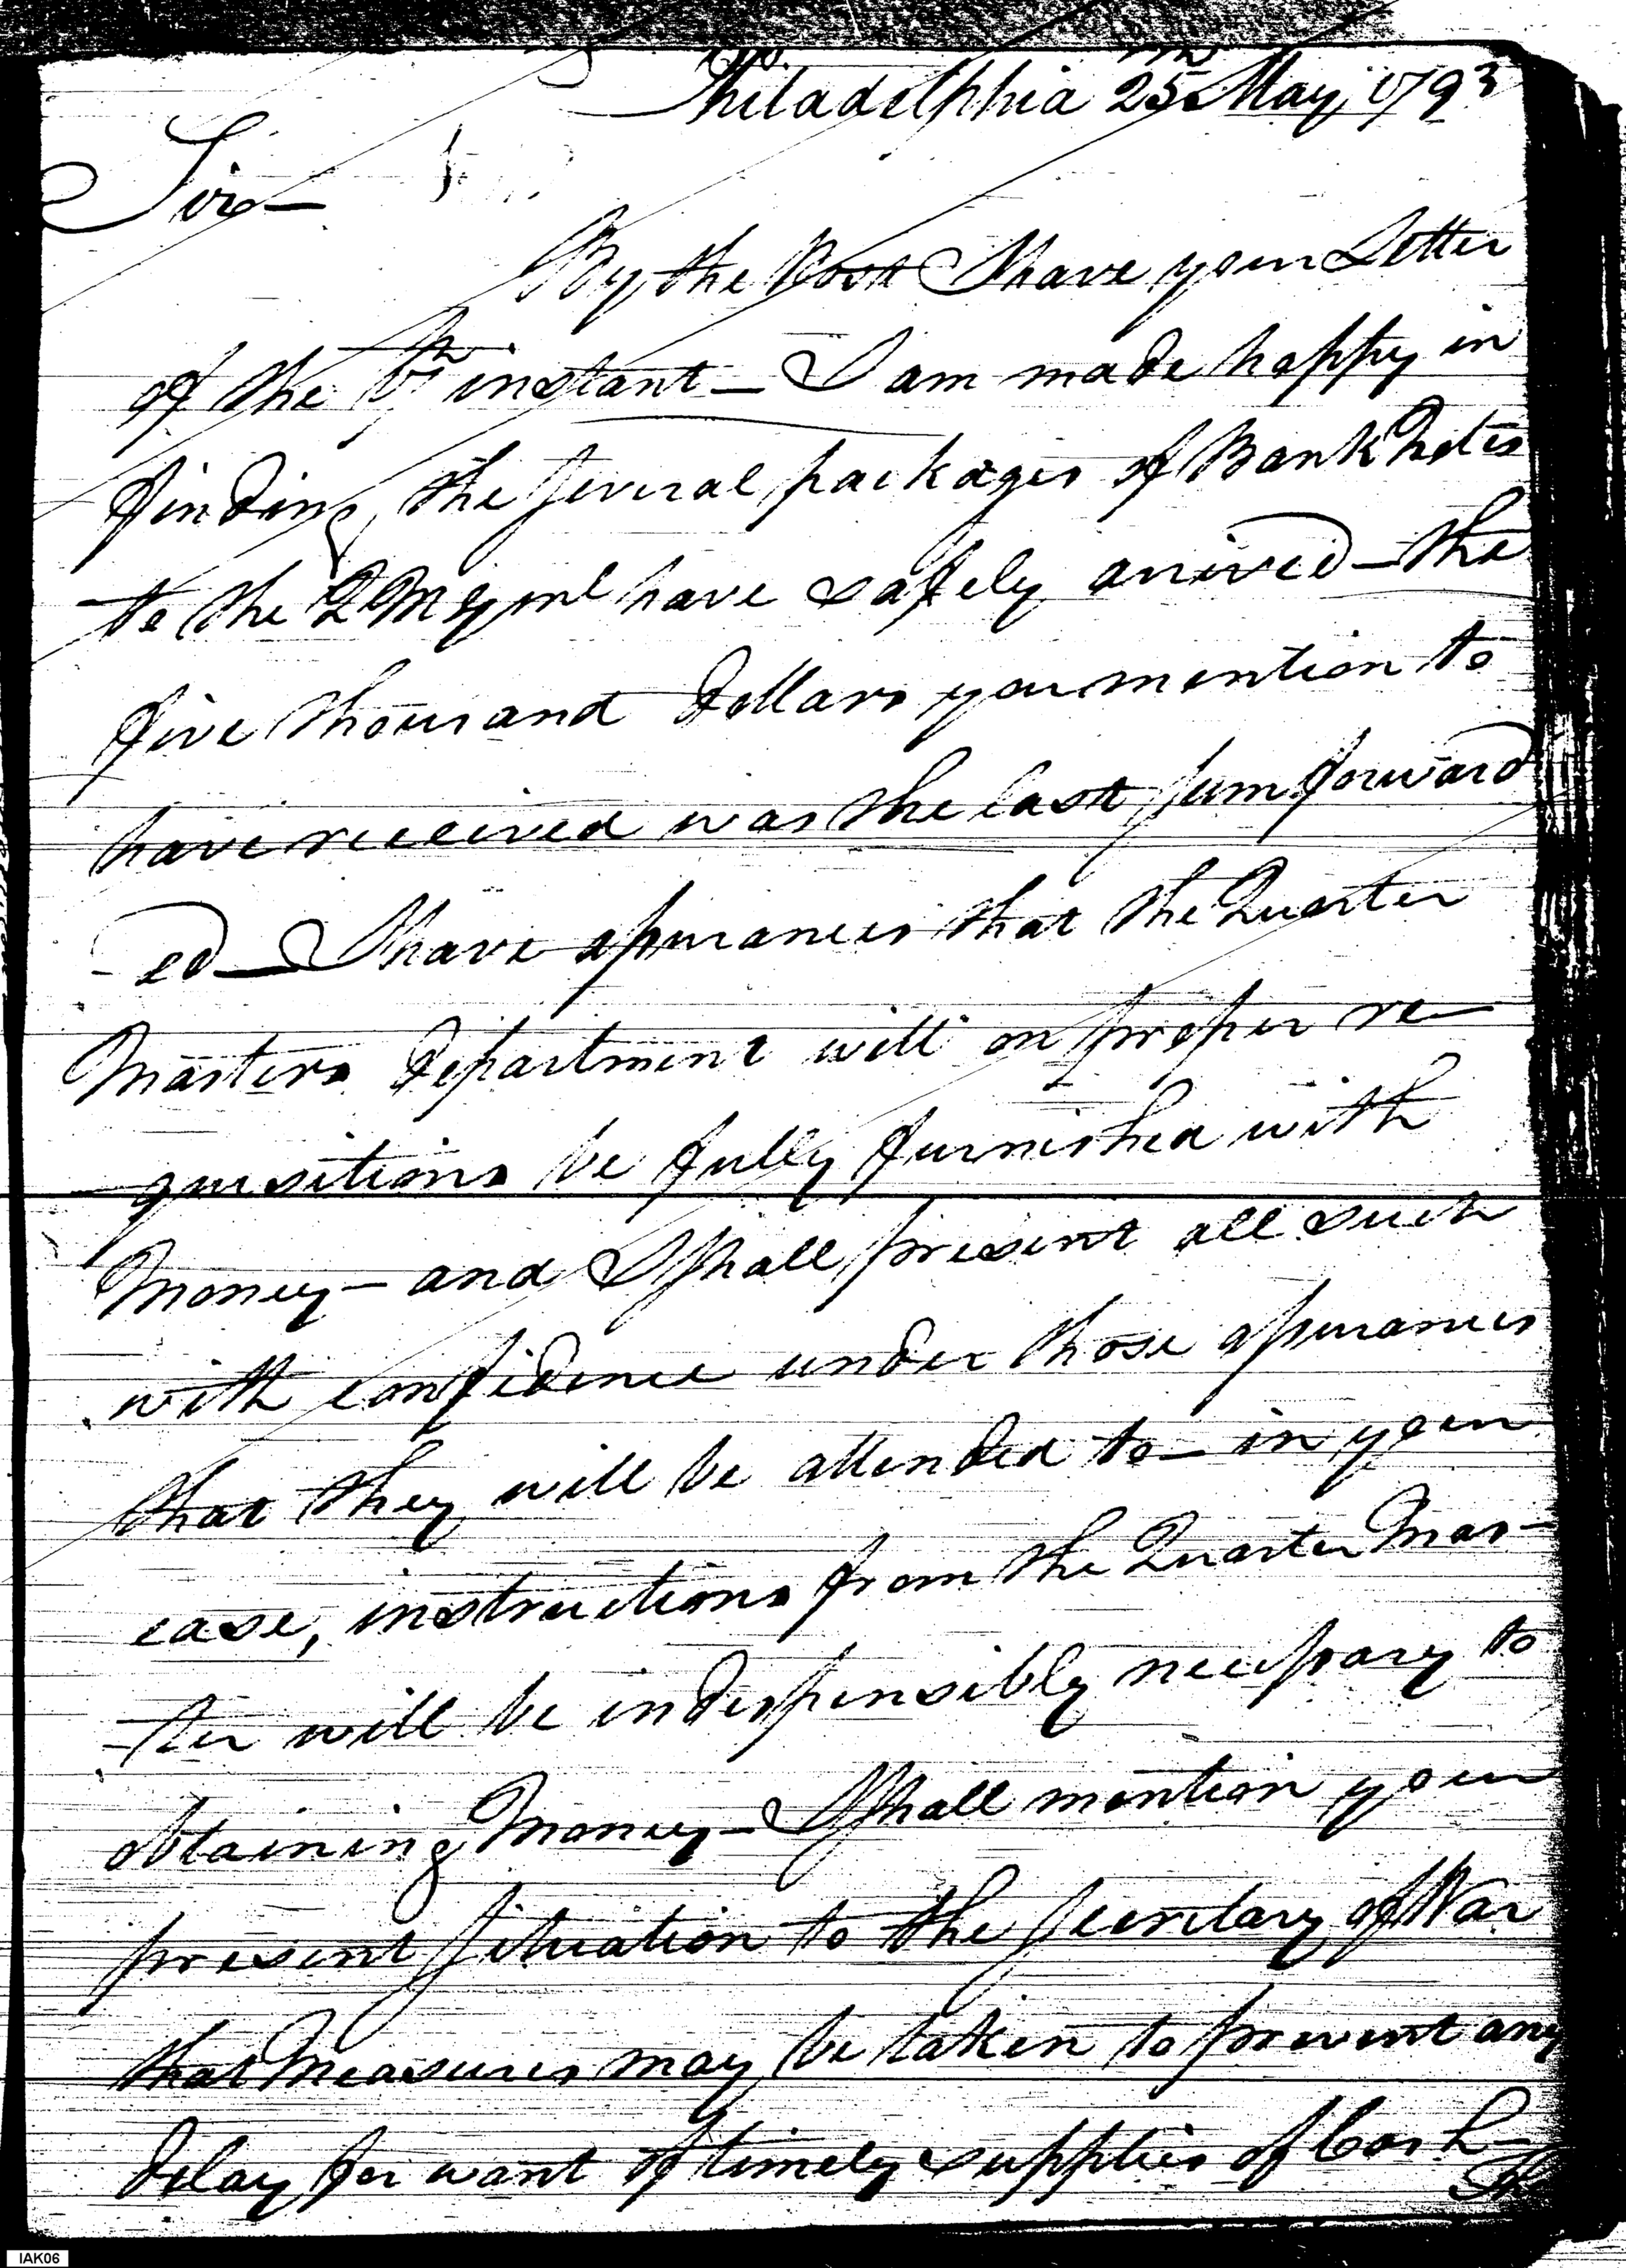 Philadelphia 25th May, 1793
Sir—
By the Post I have your Letter
of the instant — I am made happy in
finding the several packages of Bank Notes
to the QMGenl have safely arrived — the
five thousand dollars you mention to
have received was the last sum forward
-ed — I have assurances that the Quarter
Masters department will on proper re-
-quisitions be fully furnished with
Money — and I shall present all such
with confidence under those assurances
that they will be attended to — in your
case, instructions from the Quarter Mas-
-ter will be indespensibly necessary to
obtaining Money — I shall mention your
present situation to the Secretary of War
that Measures may be taken to prevent any
delay for want of timely supplies of Cash —
IAK06